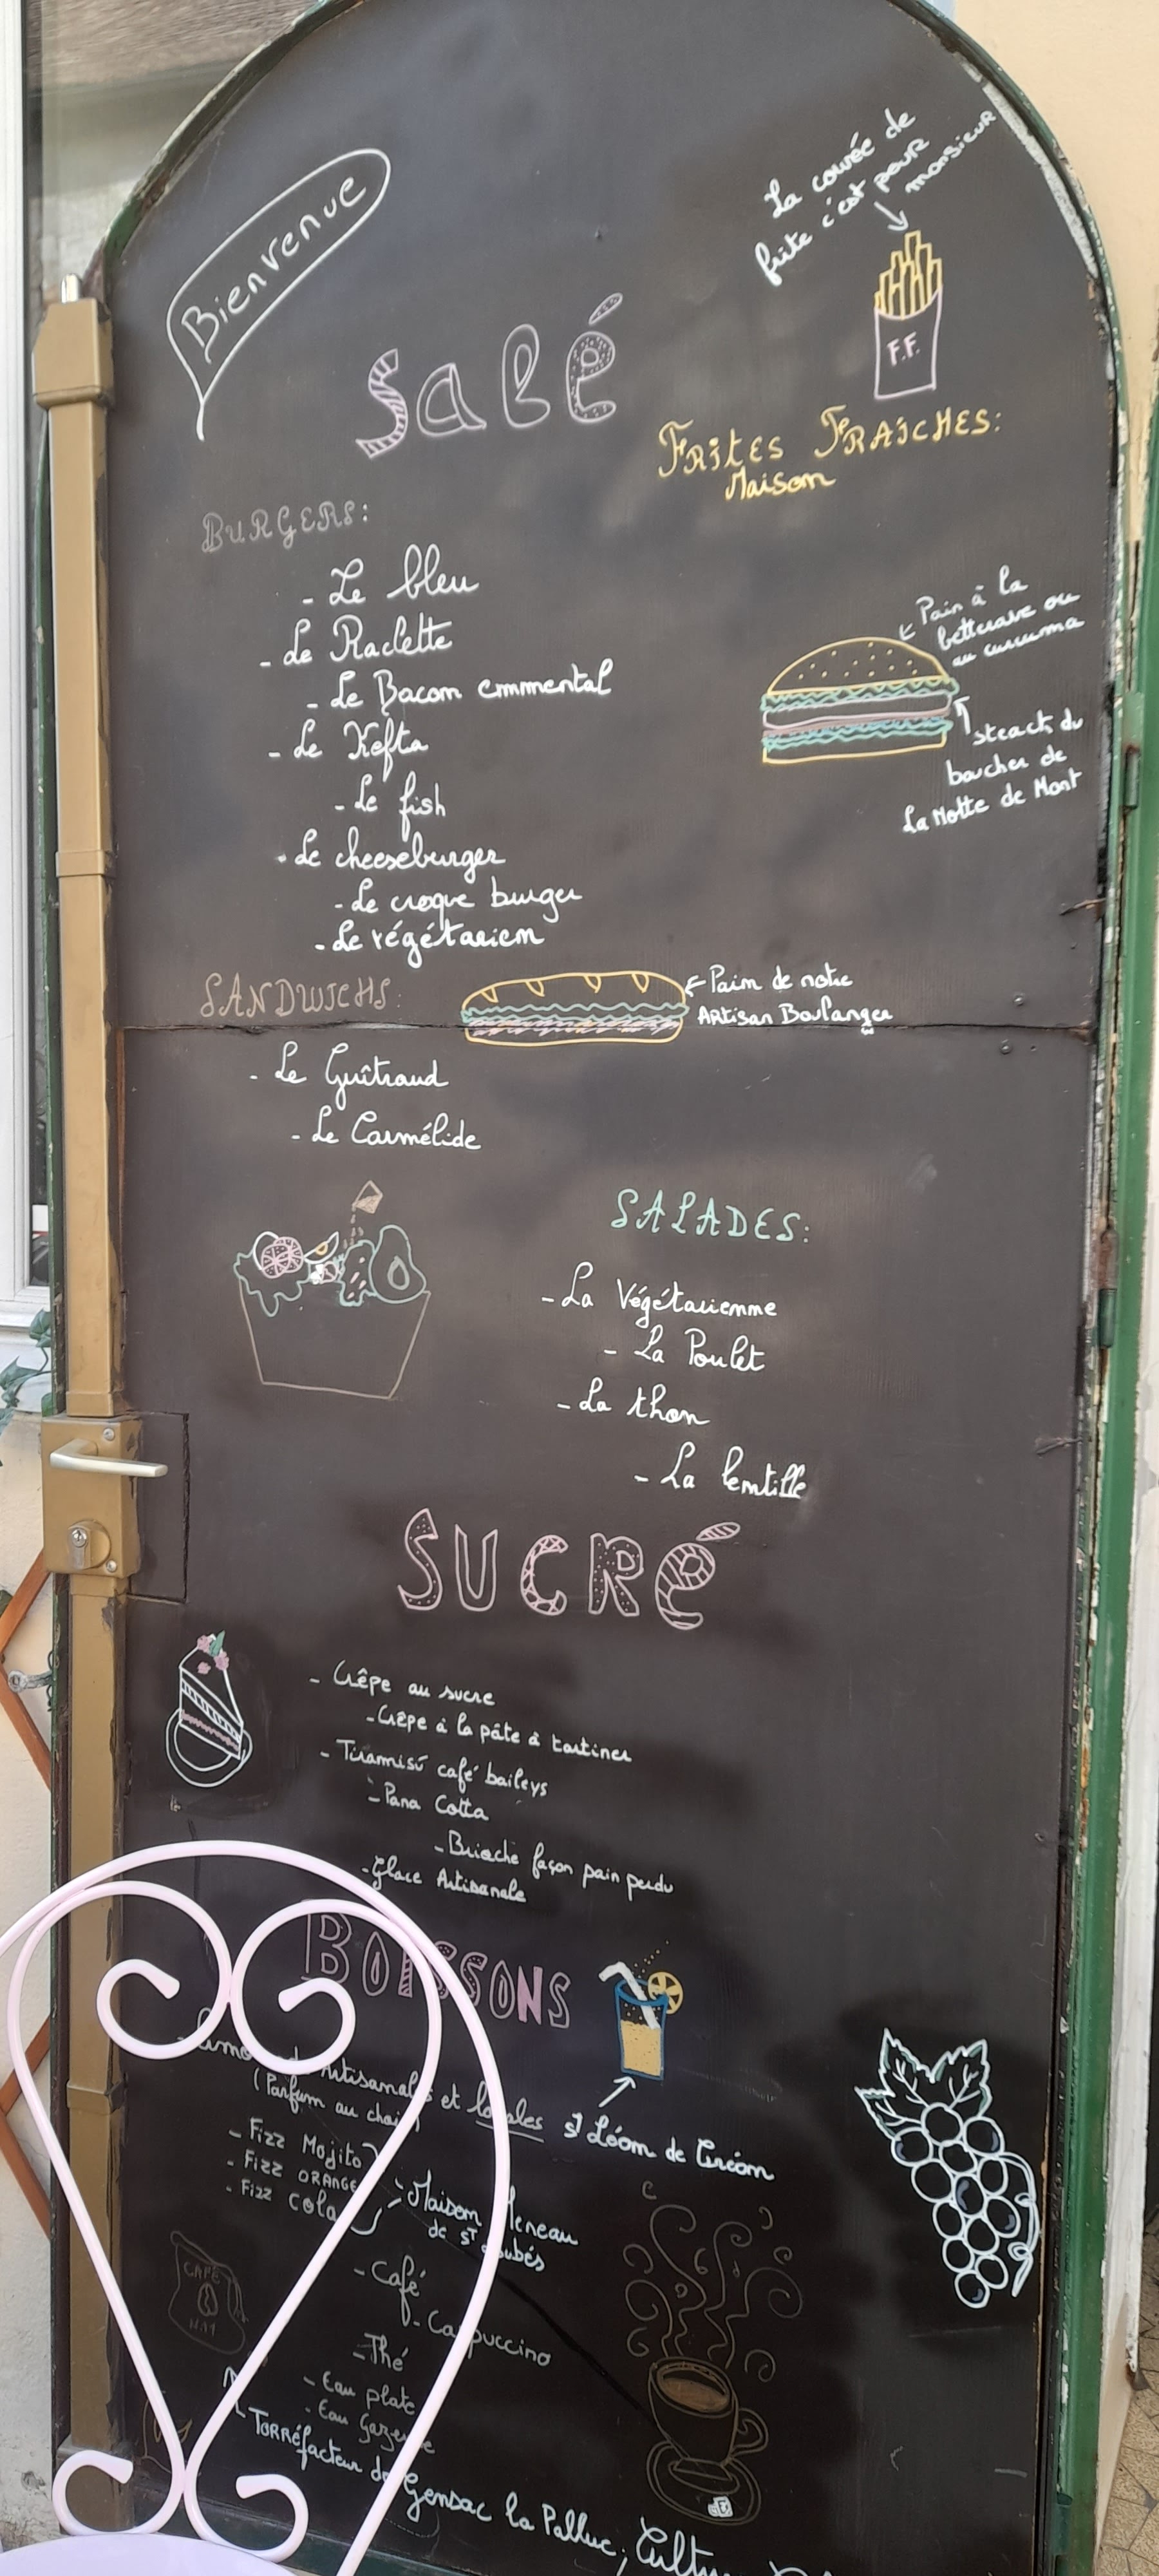 Bienvenue
La cowée de
frite c'est pour
monsieur
F.F.
Salé
FRITES FRAICHES:
Maison
BURGERS:
- Le bleu
- Le Raclette
- Le Bacon emmental
- Le Kefta
- Le fish
- Le cheeseburger
- Le croque burger
- Le végétarien
Pain à la
betterave ou
au curcuma
steack du
boucher de
La Motte de Mont
SANDWICHS:
Pain de notre
Artisan Boulanger
- Le Guîtraud
- Le Carmélide
SALADES:
- La Végétarienne
- La Poulet
- La thon
- La lentille
SUCRÉ
- Crêpe au sucre
- Crêpe à la pâte à tartiner
- Tiramisú café baileys
- Pana Cotta
- Brioche façon pain perdu
- Glace Artisanale
BOISSONS
Artisanales et locales
(Parfum au choix)
St Léon de Ciréon
- Fizz Mojito
- Fizz ORANGE
- Fizz Cola
Maison
de St
- Café
- Cappuccino
- Thé
- Eau plate
- Eau Gazeuse
CAFÉ
Torréfacteur de Gensac la Pallue,